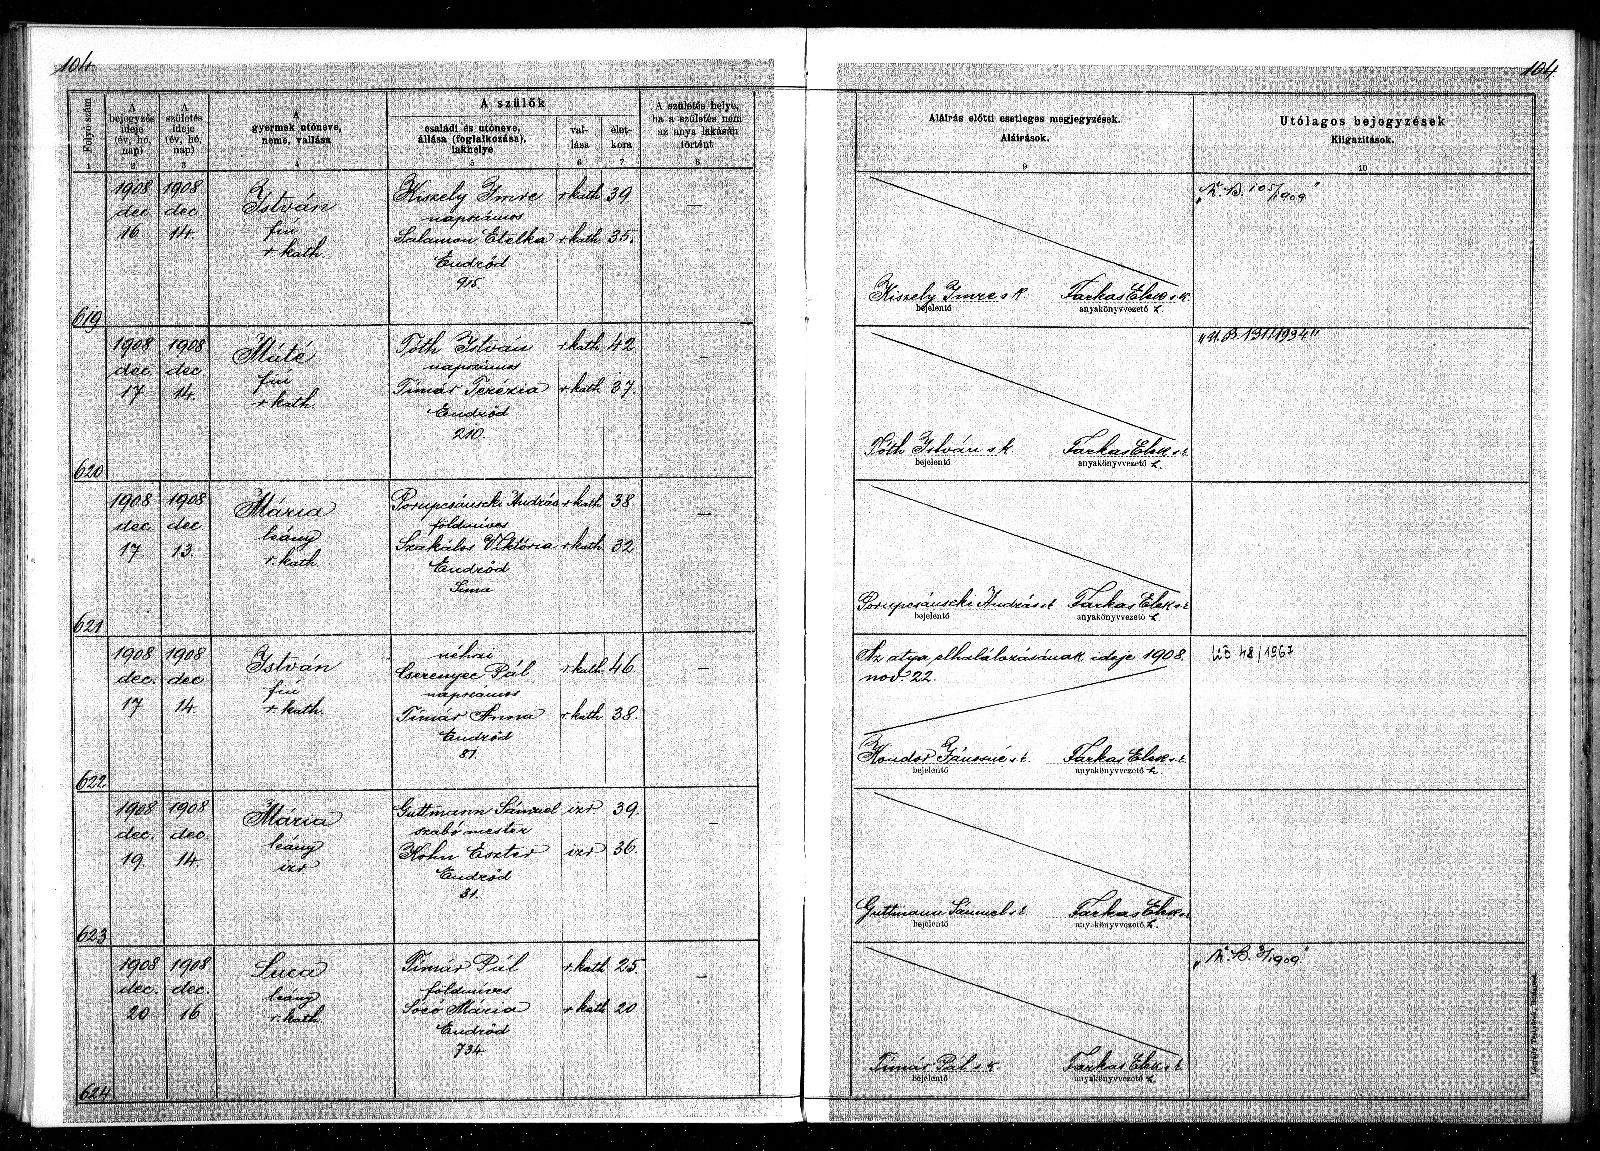 104
104
Folyó szám
1
A
bejegyzés
ideje
(év, hó,
nap)
2
A
születés
ideje
(év, hó,
nap)
3
A
gyermek utóneve,
neme, vallása
4
A szülők
családi és utóneve,
állása (foglalkozása),
lakhelye
5
val-
lása
6
élet-
kora
7
A születés helye,
ha a születés nem
az anya lakásán
történt
8
Aláírás előtti esetleges megjegyzések.
Aláírások.
9
Utólagos bejegyzések
Kiigazítások.
10
619
1908
dec
16
1908
dec
14.
István
fiú
r. kath.
Kiszely Imre r kath 39
napszámos
Salamon Etelka r. kath 35.
Endrőd
915.
—
Kiszely Imre s k.
bejelentő
Farkas Elek s k.
anyakönyvvezető
105/1909"
620
1908
dec.
17
1908
dec
14.
Máté
fiú
r kath.
Tóth István r. kath 42
napszámos
Timár Terézia r kath 37.
Endrőd
210.
—
Tóth István s k
bejelentő
Farkas Elek s. k
anyakönyvvezető
131/1934"
621
1908
dec.
17
1908
dec
13.
Mária
leány
r. kath.
András r kath 38.
földmíves
Szakálos Viktória r kath 32
Endrőd
—
András s k
bejelentő
Farkas Elek s k
anyakönyvvezető
622
1908
dec.
17
1908
dec.
14.
István
fiú
r kath.
néhai
Cserenyec Pál r. kath 46.
napszámos
Timár Anna r. kath 38.
Endrőd
81.
Az atya elhalálozásának ideje 1908.
nov. 22.
Kondor Jánosné s k
bejelentő
Farkas Elek s k
anyakönyvvezető
48/1967
623
1908
dec.
19
1908
dec.
14.
Mária
leány
izr
Guttmann Sámuel izr 39.
szabó mester
Kohn Eszter izr 36.
Endrőd
31.
—
Guttmann Sámuel s k
bejelentő
Farkas Elek s k
anyakönyvvezető
624
1908
dec.
20
1908
dec.
16
Luca
leány
r. kath
Timár Pál r. kath 25.
földmíves
Soczó Mária r kath 20
Endrőd
734.
—
Timár Pál s k
bejelentő
Farkas Elek s k
anyakönyvvezető
3/1909"